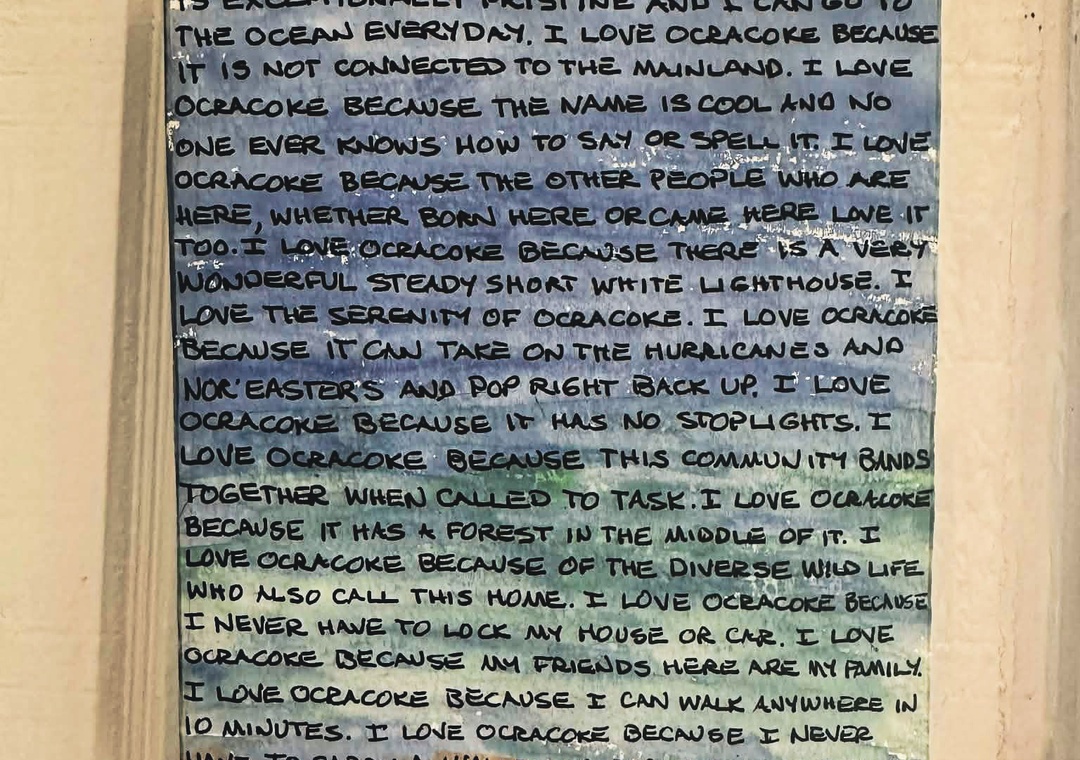 IS EXCEPTIONALLY PRISTINE AND I CAN GO TO
THE OCEAN EVERYDAY. I LOVE OCRACOKE BECAUSE
IT IS NOT CONNECTED TO THE MAINLAND. I LOVE
OCRACOKE BECAUSE THE NAME IS COOL AND NO
ONE EVER KNOWS HOW TO SAY OR SPELL IT. I LOVE
OCRACOKE BECAUSE THE OTHER PEOPLE WHO ARE
HERE, WHETHER BORN HERE OR CAME HERE LOVE IT
TOO. I LOVE OCRACOKE BECAUSE THERE IS A VERY
WONDERFUL STEADY SHORT WHITE LIGHTHOUSE. I
LOVE THE SERENITY OF OCRACOKE. I LOVE OCRACOKE
BECAUSE IT CAN TAKE ON THE HURRICANES AND
NOR'EASTER'S AND POP RIGHT BACK UP. I LOVE
OCRACOKE BECAUSE IT HAS NO STOPLIGHTS. I
LOVE OCRACOKE BECAUSE THIS COMMUNITY BANDS
TOGETHER WHEN CALLED TO TASK. I LOVE OCRACOKE
BECAUSE IT HAS A FOREST IN THE MIDDLE OF IT. I
LOVE OCRACOKE BECAUSE OF THE DIVERSE WILD LIFE
WHO ALSO CALL THIS HOME. I LOVE OCRACOKE BECAUSE
I NEVER HAVE TO LOCK MY HOUSE OR CAR. I LOVE
OCRACOKE BECAUSE MY FRIENDS HERE ARE MY FAMILY.
I LOVE OCRACOKE BECAUSE I CAN WALK ANYWHERE IN
10 MINUTES. I LOVE OCRACOKE BECAUSE I NEVER
HAVE TO